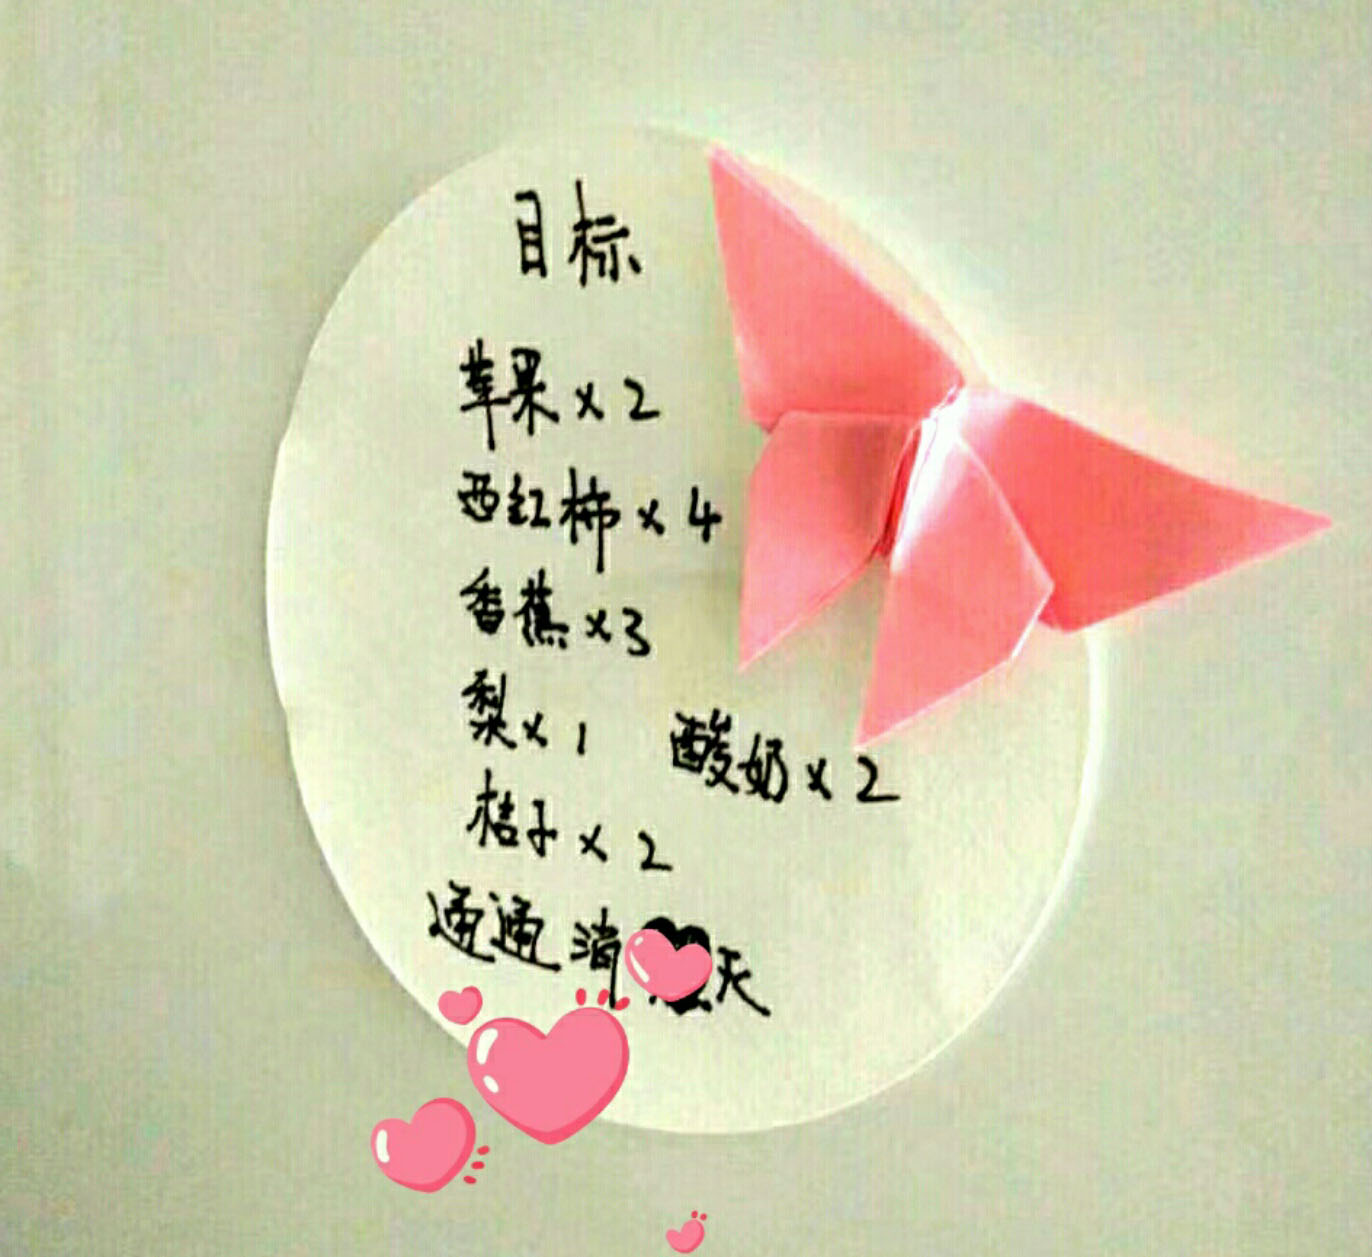 目标
苹果 x 2
西红柿 x 4
香蕉 x 3
梨 x 1
酸奶 x 2
桔子 x 2
通通消灭